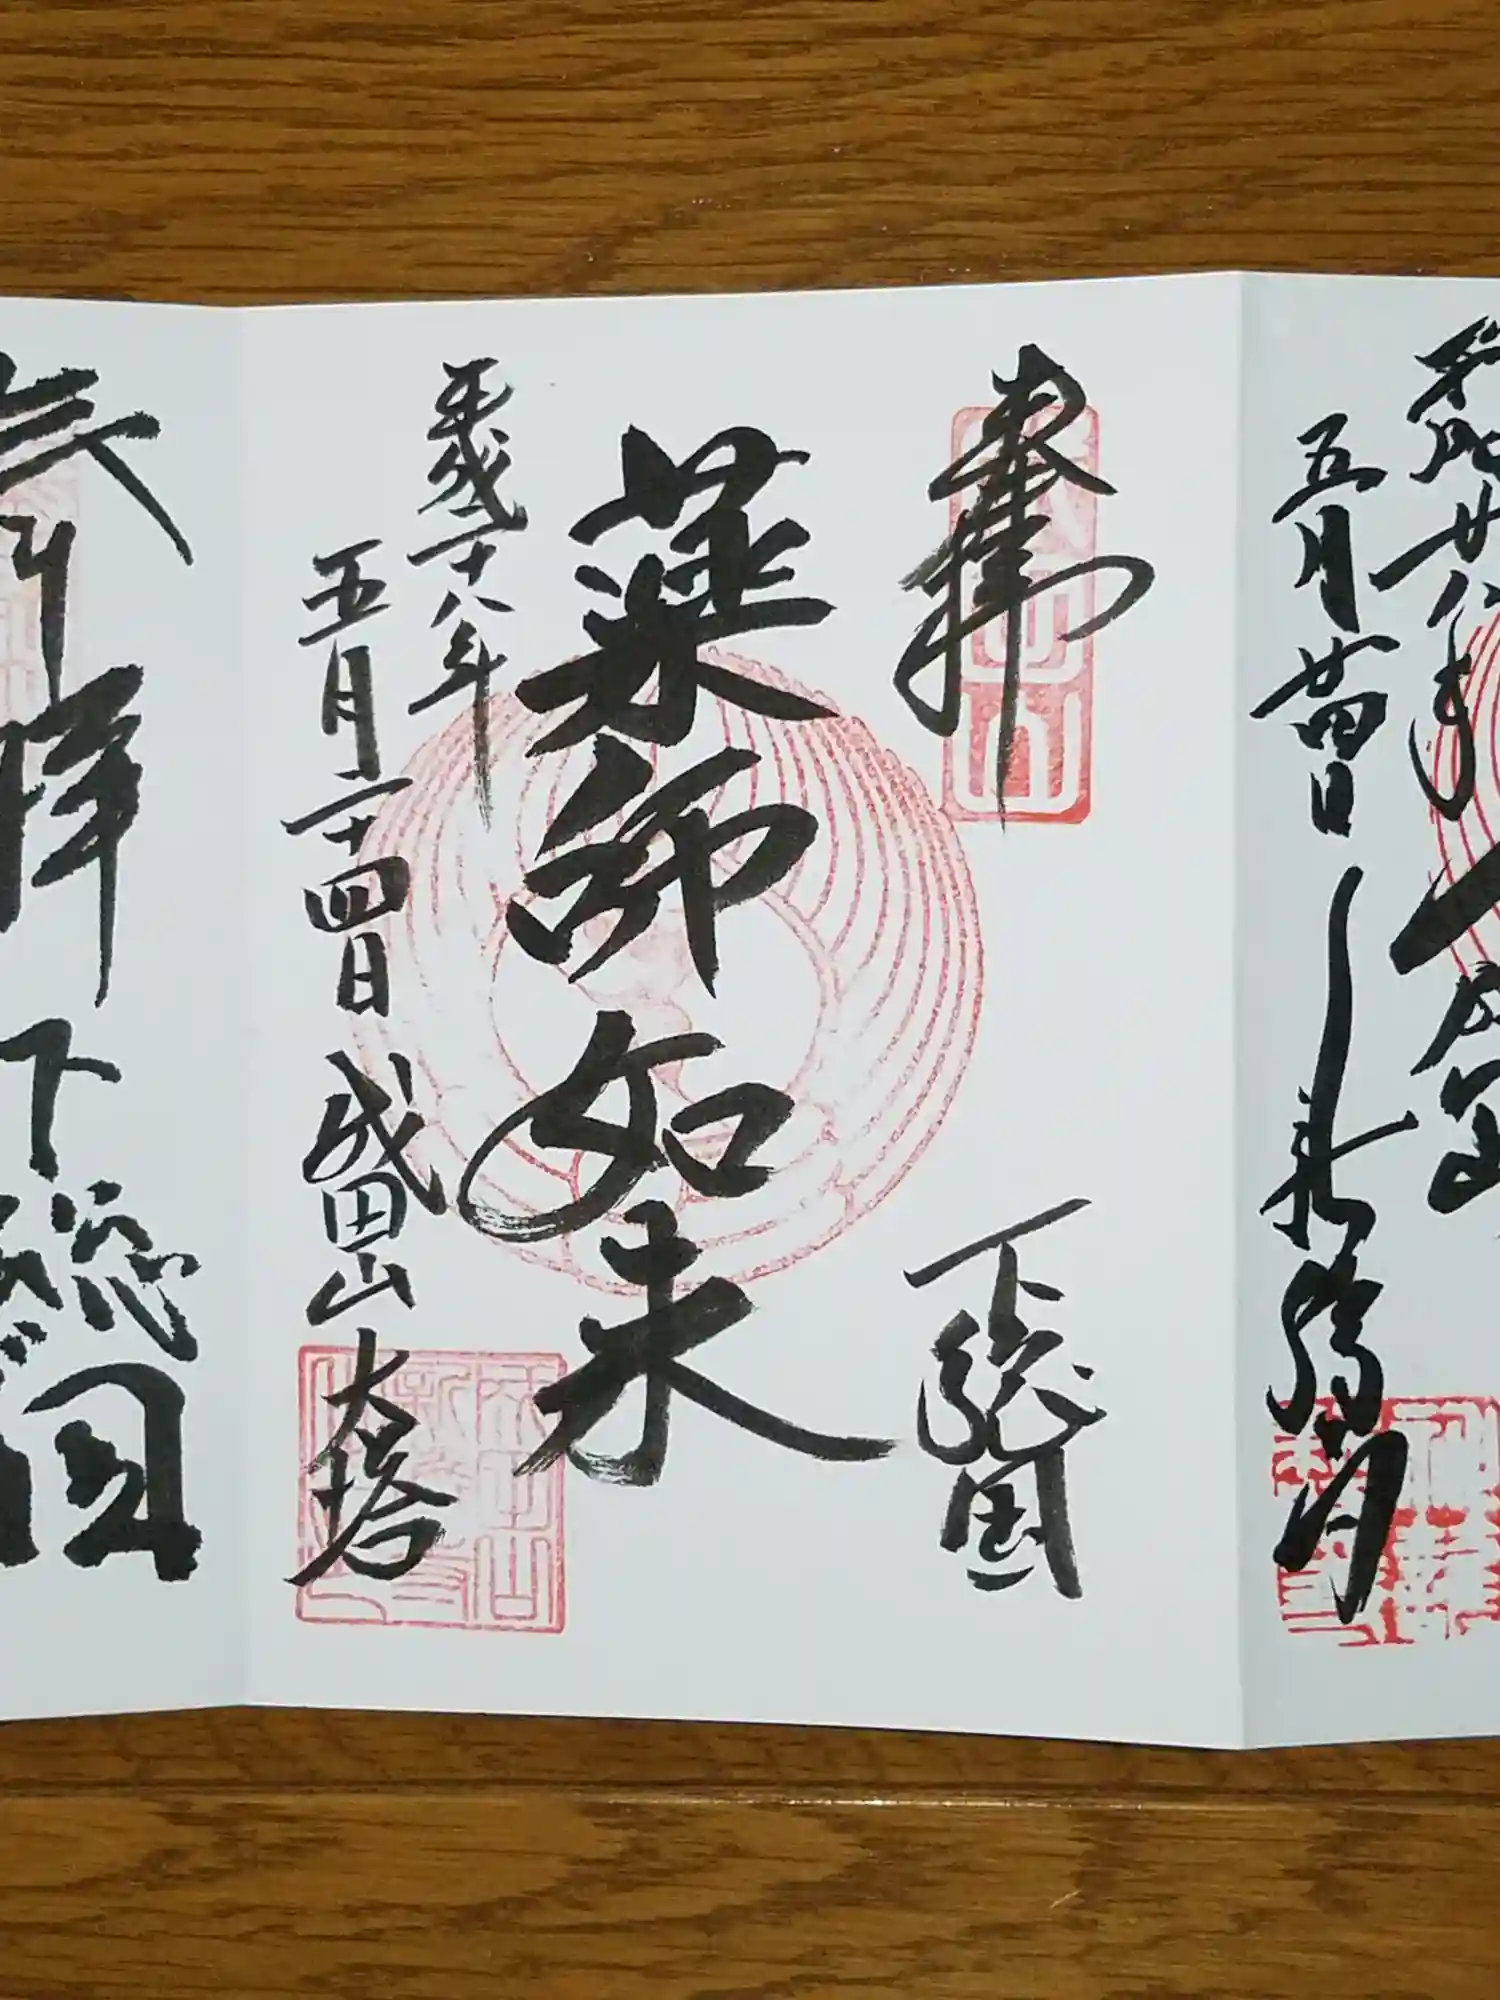 平成廿八年 成田山
五月廿四日 新勝寺
奉拝 下総国
薬師如来
平成二十八年
五月二十四日 成田山大塔
奉拝 下総国